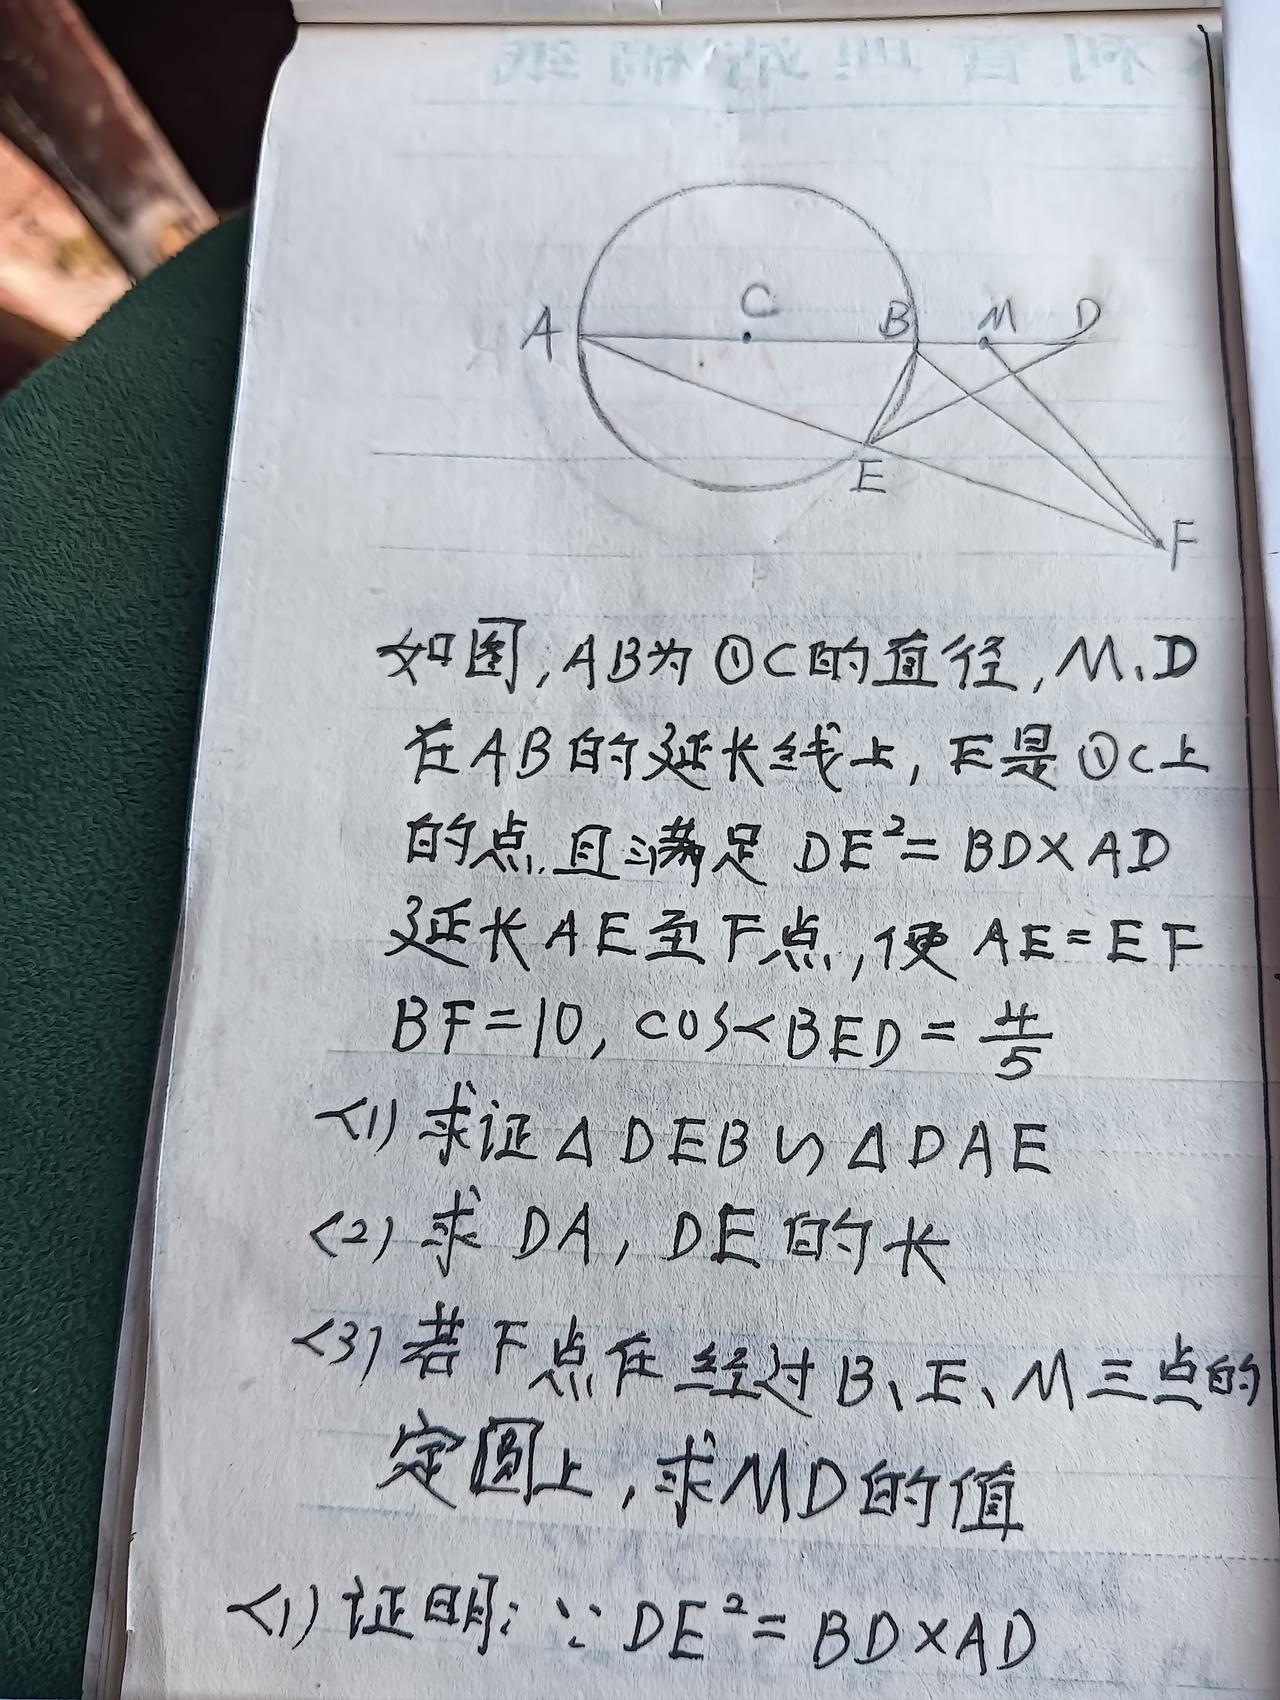 A
C
B
M
D
E
F
如图,AB为⊙C的直径,M、D
在AB的延长线上,E是⊙C上
的点.且满足 DE²=BD×AD
延长AE至F点,使AE=EF
BF=10, cos<BED=4/5
<1) 求证△DEB∽△DAE
<2) 求DA,DE的长
<3) 若F点在经过B、E、M三点的
定圆上,求MD的值
<1) 证明:∵DE²=BD×AD